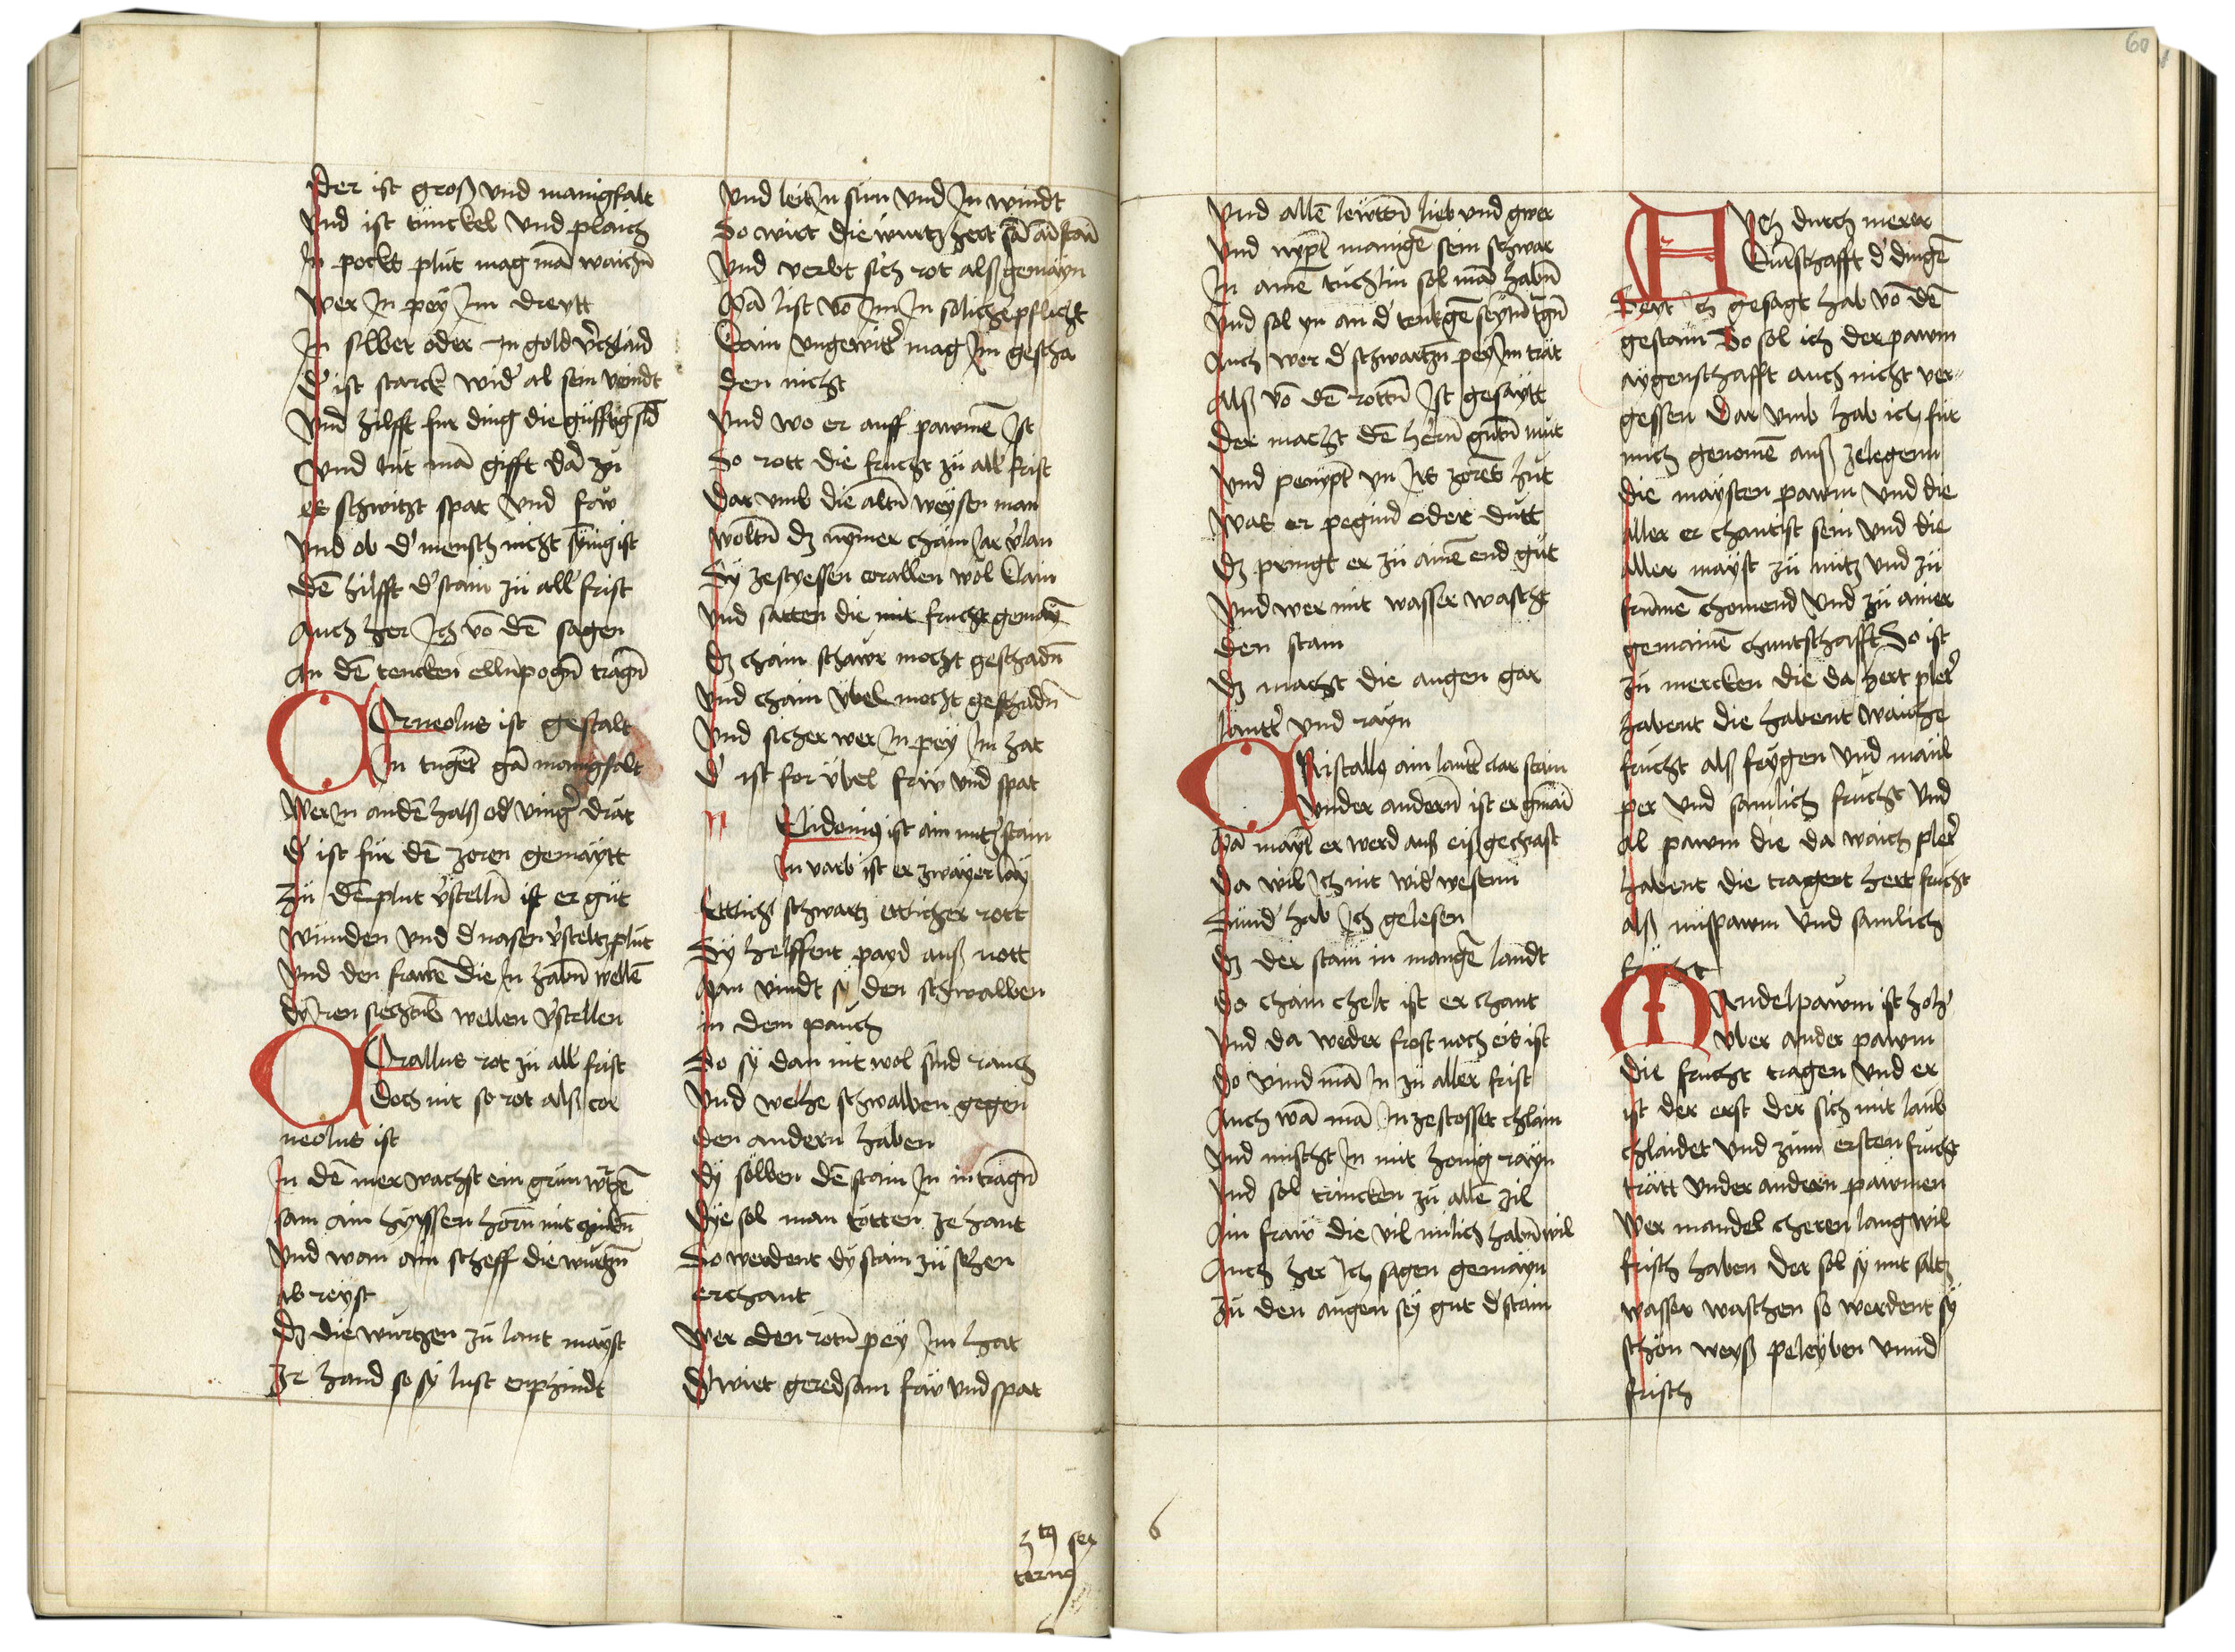 Der ist groß vnd manigfalt
vnd ist tunckel vnd plaich
In pockt plut mag mā waichn̄
wer In pey Im dreytt
In silber oder In gold v̓chlaid
d̓ ist starck wid̓ al sein veindt
vnd hilfft fur ding die gufftig sīd
vnd tut mā gifft dā zu
er schwitzt spat vnd frw
vnd ob d̓ mensch nicht synnig ist
dē hilfft d̓ stain zu all̓ frist
Auch her Ich vō dē sagen
An dē tencken ellnpogn̄ tragn̄
Corneolus ist gestalt
In tugēt gā manigfalt
Wer In an dē halß od̓ ving̓ drat
d̓ ist für dē zoren gemaytt
Zu dē plut v̓stellū ist er gut
wunden vnd d̓ nasen v̓steltz plut
vnd den frawē die In habn̄ wellē
dy Iren siechtūb wellen v̓stellen
Corallus rot zu all̓ frist
Doch nit so rot alß cor
neolus ist
In dē mer wachst ein grun wurtzē
sam ain hyrssen horn̄ mit zinkn̄
vnd wan ain scheff die wurtzn̄
ab reyst
Dz die wurtzen zu lant mayst
Ze hand so sy lust enphindt
vnd leit In sun vnd In windt
So wirt die wurtz hert sā ain stain
vnd verbt sich rot alß gemayn
Mā list vō Im In solicher pflicht
Chain vngewit̓ mag Im gescha
den nicht
vnd wo er auff pawmē Ist
So rott die frucht zu all̓ frist
Dar vmb die altn̄ weysen man
woltn̄ dz nymer chain Iar v̓lan
Sy zestyessen corallen wol klain
vnd satten die mit frucht gemayn
Dz chain schawr mocht geschadn̄
vnd chain übel mocht geschadn̄
vnd sicher wer In pey Im hat
d̓ ist for übel frw vnd spat
Celidonius ist ain nutz̓ stain
In varb ist er zwayer lay
Ettlich̓ schwartz ettlicher rott
Sy helffent payd auß nott
Man vindt sy den schwalben
in dem pauch
Do sy dan nit wol sind rauch
vnd welhe schwalben gegen
den andern haben
Dy sölben dē stain In in tragn̄
Dye sol man tötten ze hant
So werdent dy stain zu sehen
erchant
Wer den rotn̄ pey Im hat
D̓ wirt geredsam frw vnd spat
3tus sex
ternus
60
vnd allē lewttn̄ lieb vnd gwer
vnd nypt manigē sein schwar
In ainē tuchlin sol mā habn̄
vnd sol yn an d̓ tenkgē seytn̄ tgn̄
Auch wer d̓ schwartzn̄ pey Im trat
Alß vō dē rottn̄ Ist gesaytt
Der macht dē hern̄ gutn̄ mut
vnd penypt yn Irs zorns hut
Was er pegind oder dutt
Dz pringt er zu ainē end gut
vnd wer mit wasser wascht
den stain
Dz macht die augen gar
lautt̓ vnd rayn
Cristallus ain laut̓ clar stain
vnder andern̄ ist er gmain
Mā maynt er werd auß eiß gechast
Da wil Ich nit wid̓ westenn
Sund̓ hab Ich gelesen
Dz der stain in mangē landt
Do chain chelt ist er chant
vnd da weder frost noch eis ist
Do vind mā In zu aller frist
Auch wā mā In zestosset chlain
vnd mischt In mit honig rayn
vnd sol trincken zu allē zil
Ain fraw die vil milich habn̄ wil
Auch her Ich sagen gemayn
Zu den augen sey gut d̓ stain
6
Auch durch merer
kuntschafft d̓ dingē
Seyt Ich gesagt hab vō dē
gestain So sol ich der pawm
aygenschafft auch nicht ver-
gessen Dar vmb hab ich für
mich genomē auß zelegenn
die maysten pawm vnd die
aller er chantist sein vnd die
aller mayst zu nutz vnd zu
frumē chomend vnd zu ainer
gemainē chuntschafft So ist
zu mercken die da hert plet̓
habent die habent waiche
frucht alß feygen vnd maul
per vnd samlich frucht vnd
al pawm die da waich plet̓
habent die tragent hert frucht
alß nuspawm vnd samlich
frucht
Mandelpawm ist holtz
über ander pawm
die frucht tragen vnd er
ist der erst der sich mit laub
chlaidet vnd zum ersten frucht
trätt vnder andern pawmen
Wer mandel cheren lang wil
frisch haben der sol sy mit saltz
wasser waschen so werdent sy
schön weyß peleyben vnnd
frisch